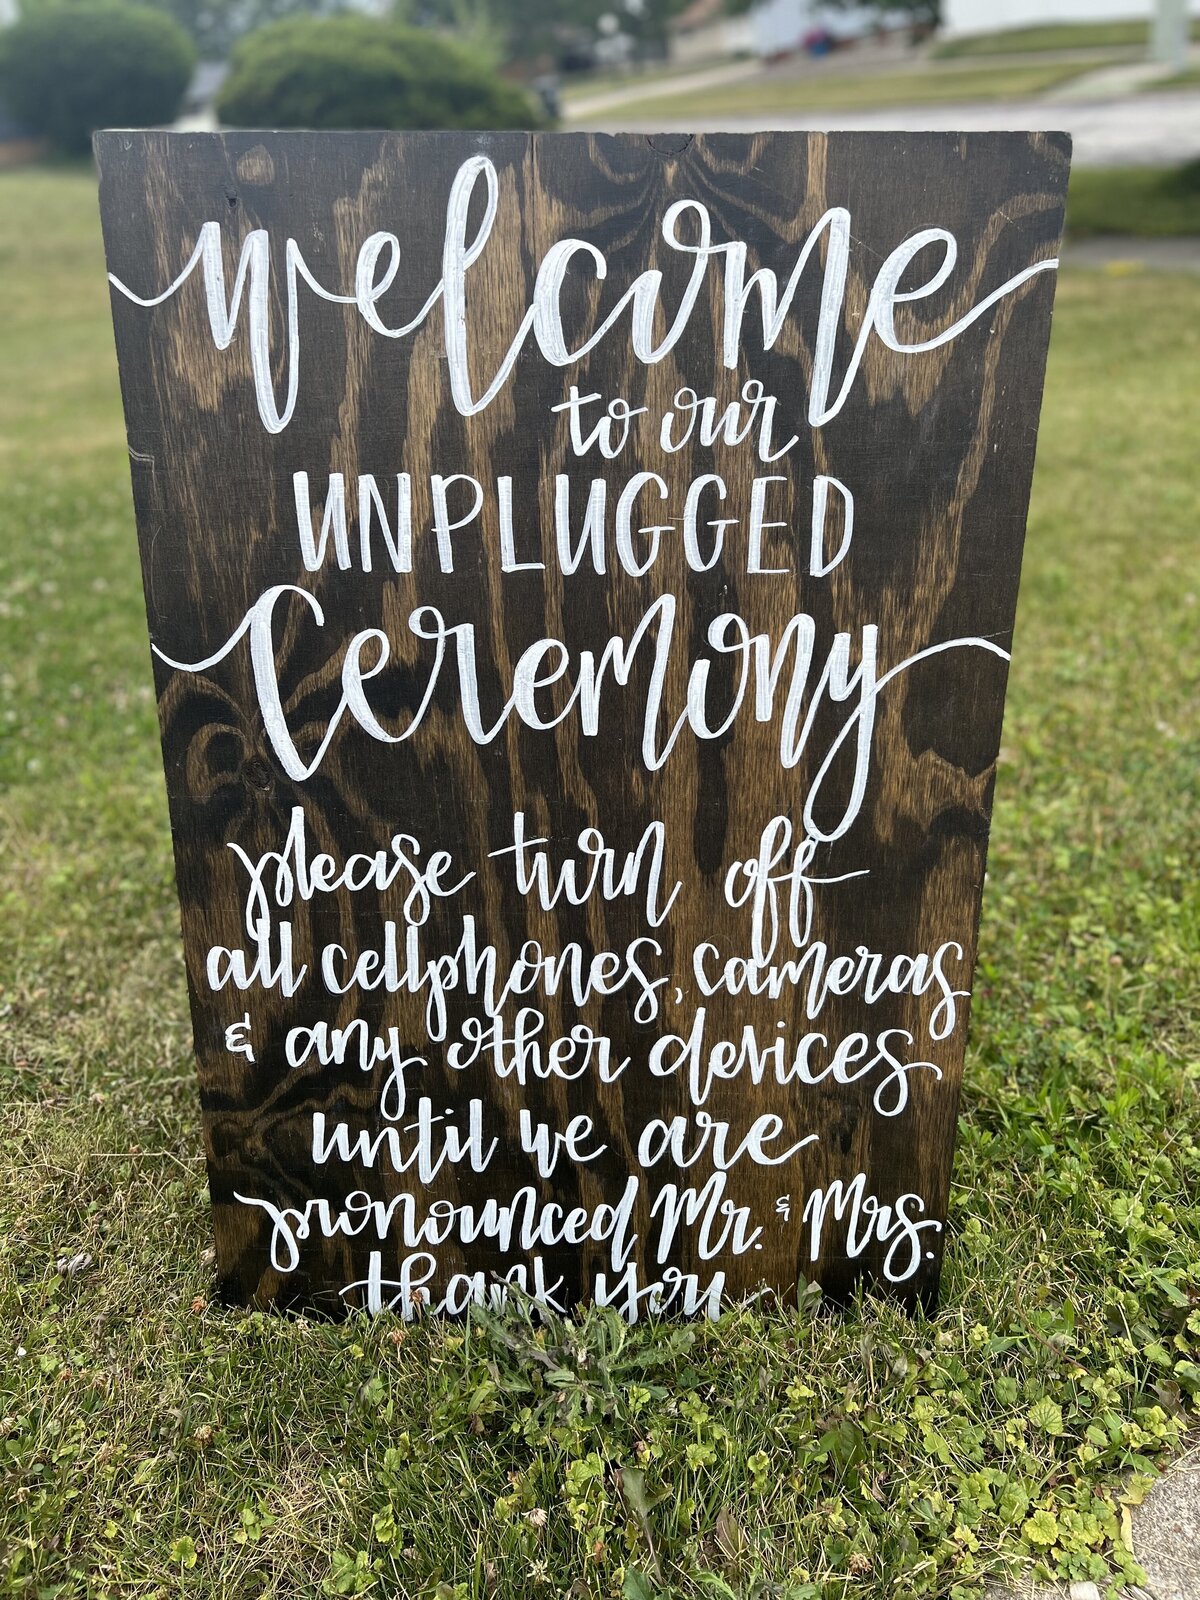 welcome
to our
UNPLUGGED
Ceremony
please turn off
all cellphones, cameras
& any other devices
until we are
pronounced Mr. & Mrs.
thank you